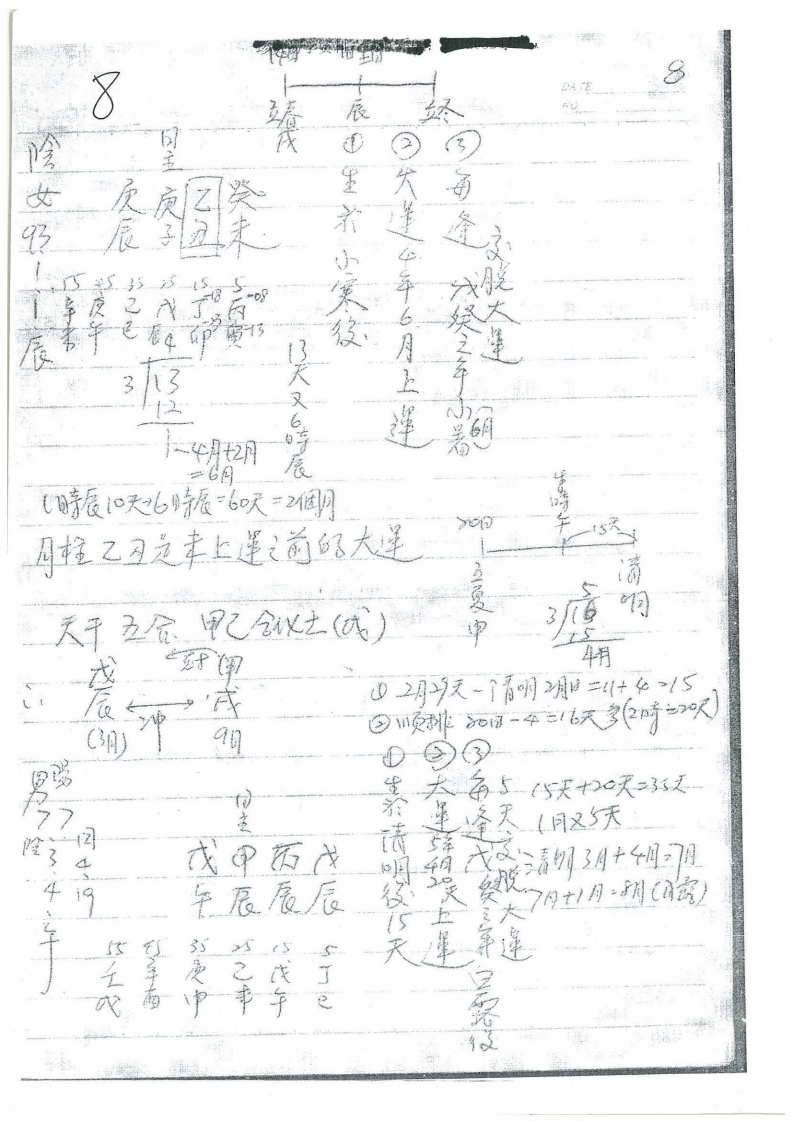 8
8
DATE
NO
立春
戌
辰
立冬
陰女 93、1、1 辰
日主
癸未
乙丑
庚子
庚辰
5 丙寅
15 丁卯
25 戊辰
35 己巳
45 庚午
55 辛未
①生於小寒後
13天又6時辰
②大運4年6月上運
③每逢戊癸之年小暑(6月)
交脫大運
4
3 13
12
1
4月+2月
=6月
1時辰10天→6時辰=60天=2個月
月柱乙丑是未上運之前的大運
天干五合 甲己合化土(戊)
戊辰
(3月)
沖
甲戌
9月
生時午
20日
15天
立夏
申
清明
5
3 16
15
4月
①2月29天-清明2月 日=11+4=15
②順排 20日-4=16天 (2時=20天)
①生於清明後15天
②大運5年4月20天上運
③每逢戊癸之年白露後
5天交脫大運
15天+20天=35天
1月又5天
清明3月+4月=7月
7月+1月=8月(白露)
陽男77
國4、19
陰 3、4、午
日主
戊辰
丙辰
甲辰
戊午
5 丁巳
15 戊午
25 己未
35 庚申
45 辛酉
55 壬戌